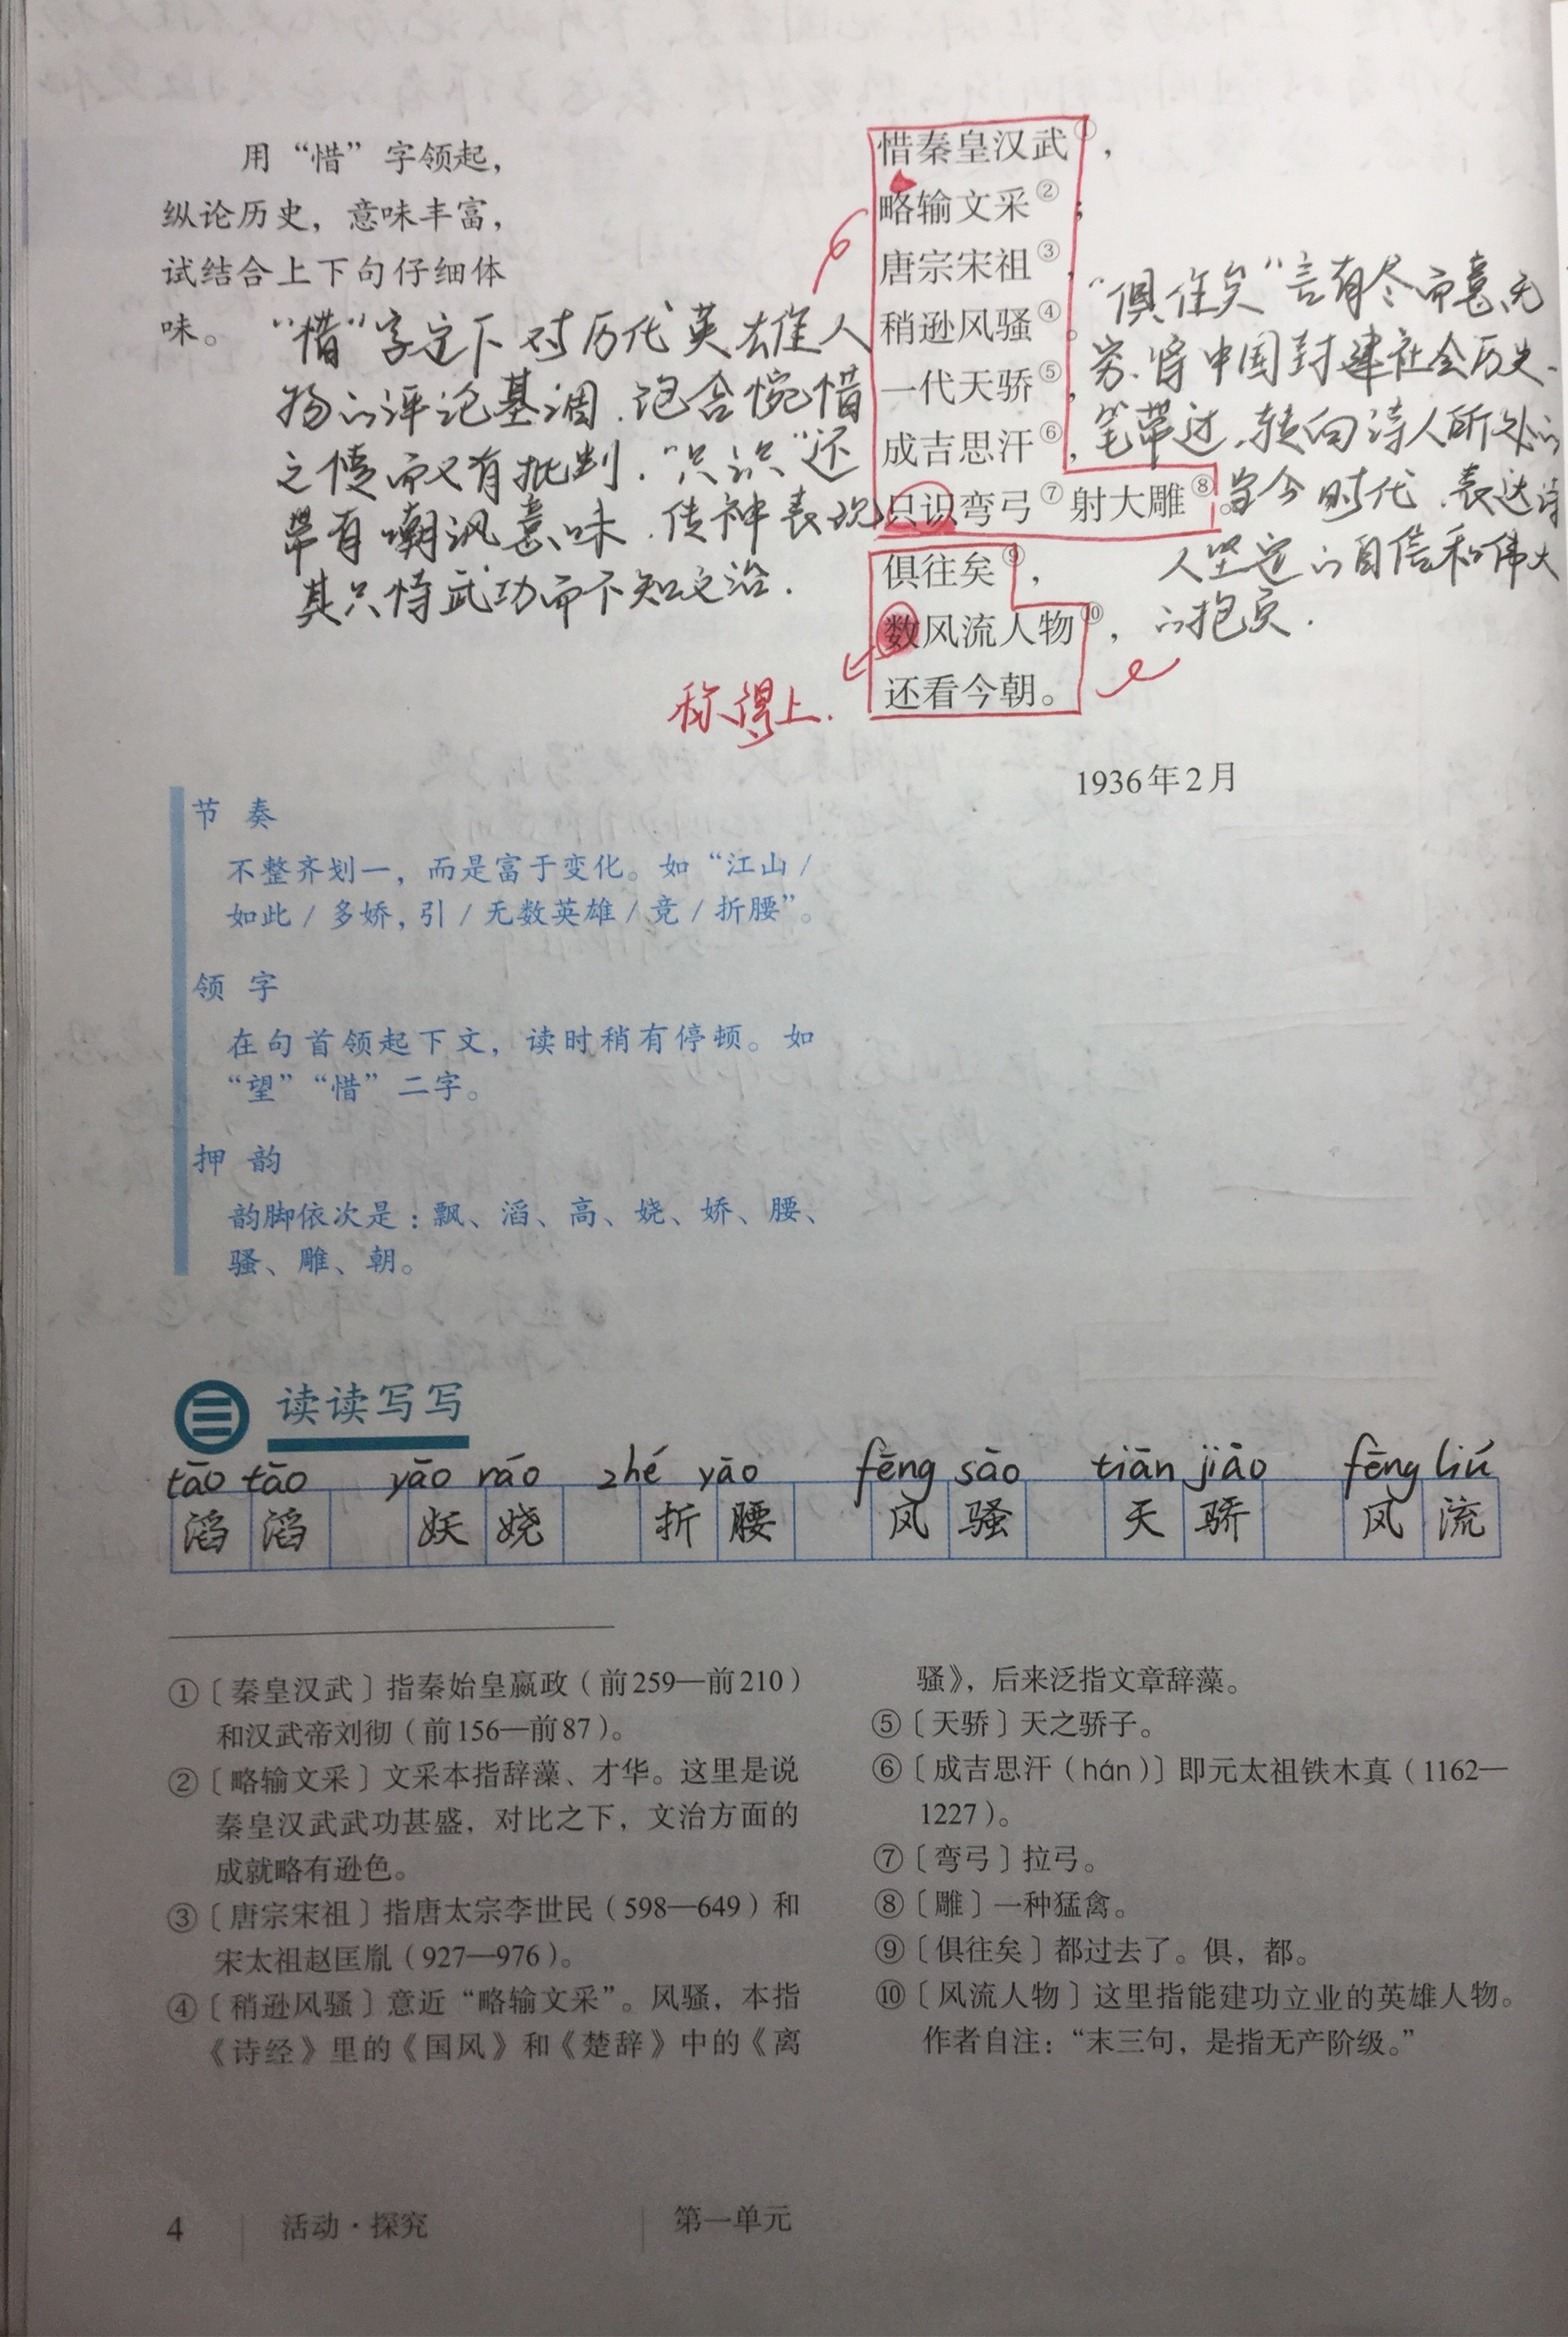 用“惜”字领起，
纵论历史，意味丰富，
试结合上下句仔细体
味。
“惜”字定下对历代英雄人
物的评论基调.饱含惋惜
之情而又有批判.“只识”还
带有嘲讽意味.传神表现
其只恃武功而不知文治.
惜秦皇汉武①，
略输文采②；
唐宗宋祖③，
稍逊风骚④。
一代天骄⑤，
成吉思汗⑥，
只识弯弓⑦射大雕⑧。
俱往矣⑨，
数风流人物⑩，
还看今朝。
称得上.
“俱往矣”言有尽而意无
穷.将中国封建社会历史一
笔带过.转向诗人所处的
当今时代.表达诗
人坚定的自信和伟大
的抱负.
1936年2月
节 奏
不整齐划一，而是富于变化。如“江山/
如此/多娇，引/无数英雄/竞/折腰”。
领 字
在句首领起下文，读时稍有停顿。如
“望”“惜”二字。
押 韵
韵脚依次是：飘、滔、高、娆、娇、腰、
骚、雕、朝。
读读写写
tāo tāo yāo ráo zhé yāo fēng sāo tiān jiāo fēng liú
滔滔 妖娆 折腰 风骚 天骄 风流
①〔秦皇汉武〕指秦始皇嬴政（前259—前210）
和汉武帝刘彻（前156—前87）。
②〔略输文采〕文采本指辞藻、才华。这里是说
秦皇汉武武功甚盛，对比之下，文治方面的
成就略有逊色。
③〔唐宗宋祖〕指唐太宗李世民（598—649）和
宋太祖赵匡胤（927—976）。
④〔稍逊风骚〕意近“略输文采”。风骚，本指
《诗经》里的《国风》和《楚辞》中的《离
骚》，后来泛指文章辞藻。
⑤〔天骄〕天之骄子。
⑥〔成吉思汗（hán）〕即元太祖铁木真（1162—
1227）。
⑦〔弯弓〕拉弓。
⑧〔雕〕一种猛禽。
⑨〔俱往矣〕都过去了。俱，都。
⑩〔风流人物〕这里指能建功立业的英雄人物。
作者自注：“末三句，是指无产阶级。”
4 活动·探究 第一单元